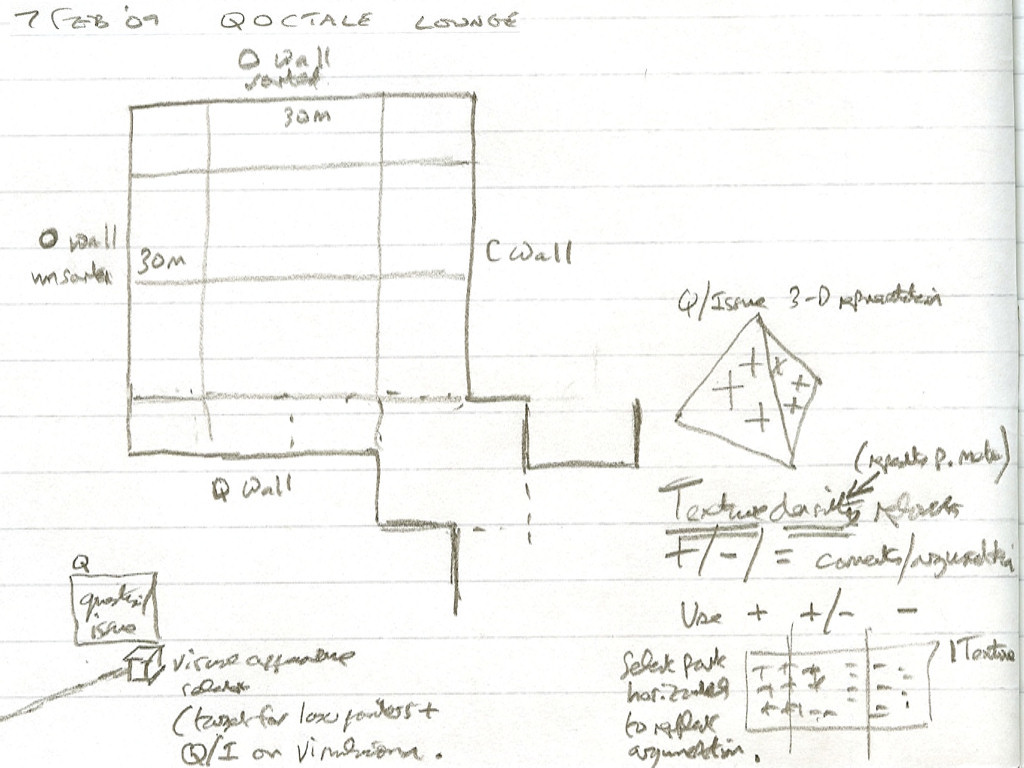 7 FEB '09 QOCTALE LOUNGE
O Wall
sorted
30M
O wall
unsorted
30M
C Wall
Q Wall
Q/Issue 3-D representation
(repeats p.
Texture density
+/-/= comments/argumentation
Use + +/- -
Q
question/
issue
visual affordance
(target for laser pointers +
Q/I on
Select part
horizontal
to reflect
argumentation.
1 Texture